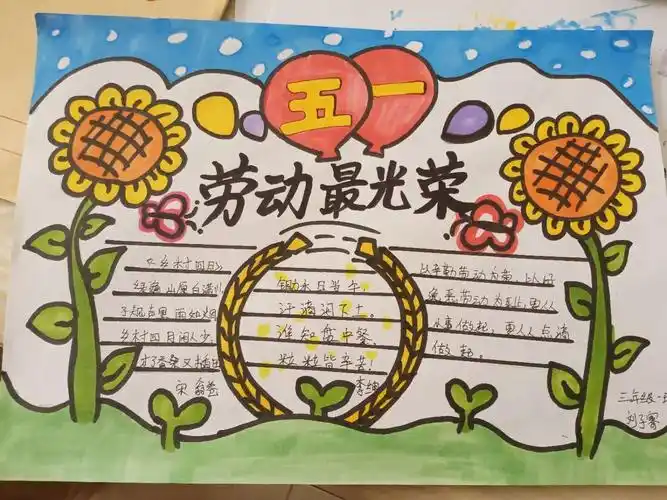 五一
劳动最光荣
《乡村四月》
绿遍山原白满川
子规声里雨如烟
乡村四月闲人少
才了蚕桑又插田
宋 翁卷
锄禾日当午
汗滴禾下土。
谁知盘中餐
粒粒皆辛苦！
李绅
以辛勤劳动为荣,以好
逸恶劳动为耻,更从
小事做起,更从点滴
做起。
三年级一班
刘子